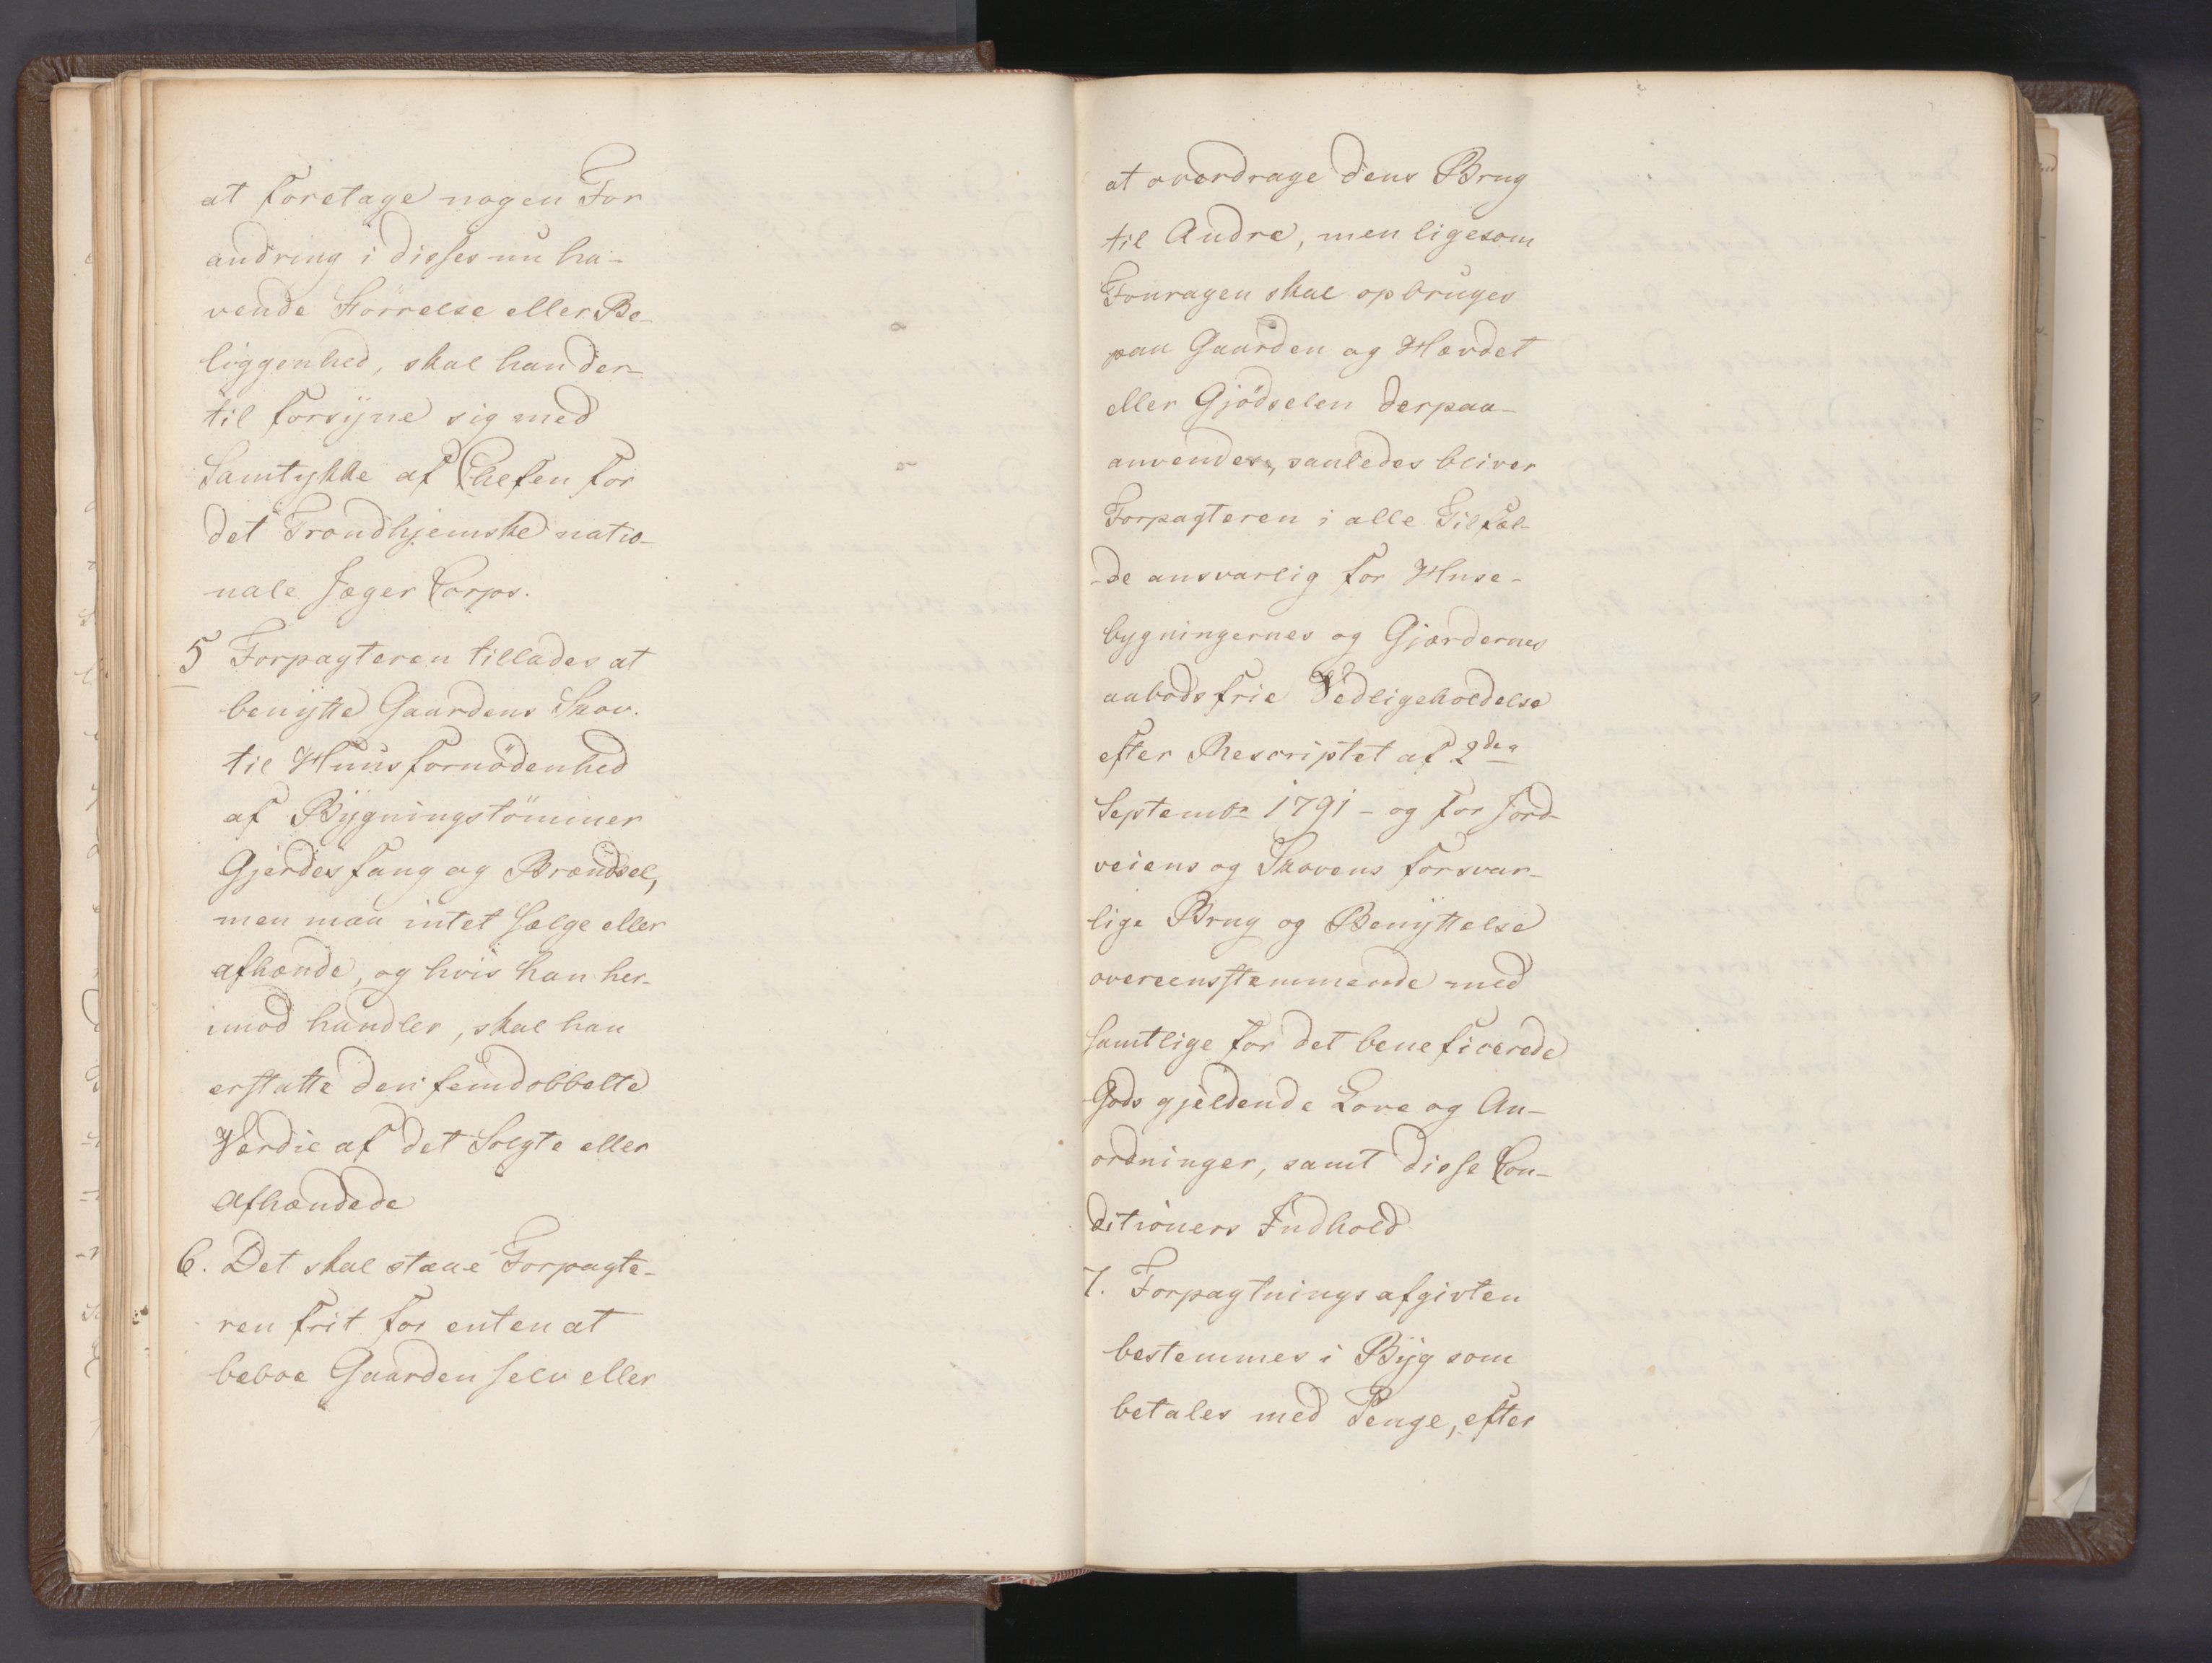 at foretage nogen For
andring i disses nu ha-
vende Störrelse eller Be-
liggenhed, skal han der-
til forsÿne sig med
Samtykke af Chefen for
det Trondhjemske natio-
nale Jæger Corps.
5 Forpagteren tillades at
benÿtte Gaardens Skov.
til Huusfornödenhed
af Bÿgningstömmer
Gjerdesfang og Brændsel,
men maa intet sælge eller
afhænde, og hvis han her-
imod handler, skal han
erstatte den femdobbelte
Værdie af det Solgte eller
Afhændede
6. Det skal staae Forpagte-
ren frit for enten at
beboe Gaarden selv eller
at overdrage dens Brug
til Andre, men ligesom
Fouragen skal opbruges
paa Gaarden og Hævdet
eller Gjödselen derpaa-
anvendes, saaledes bliver
Forpagteren i alle Tilfæl-
-de ansvarlig for Huse-
bygningernes og Gjærdernes
aabodsfrie Vedligeholdelse
efter Rescriptet af 2den
Septembr 1791 - og for Jord-
veiens og Skovens forsvar-
lige Brug og Benÿttelse
overeensstemmende med
samtlige for det beneficerede
Gods gjeldende Love og An-
ordninger, samt disse Con-
ditioners Indhold
7. Forpagtningsafgivten
bestemmes i Bÿg som
betales med Penge, efter